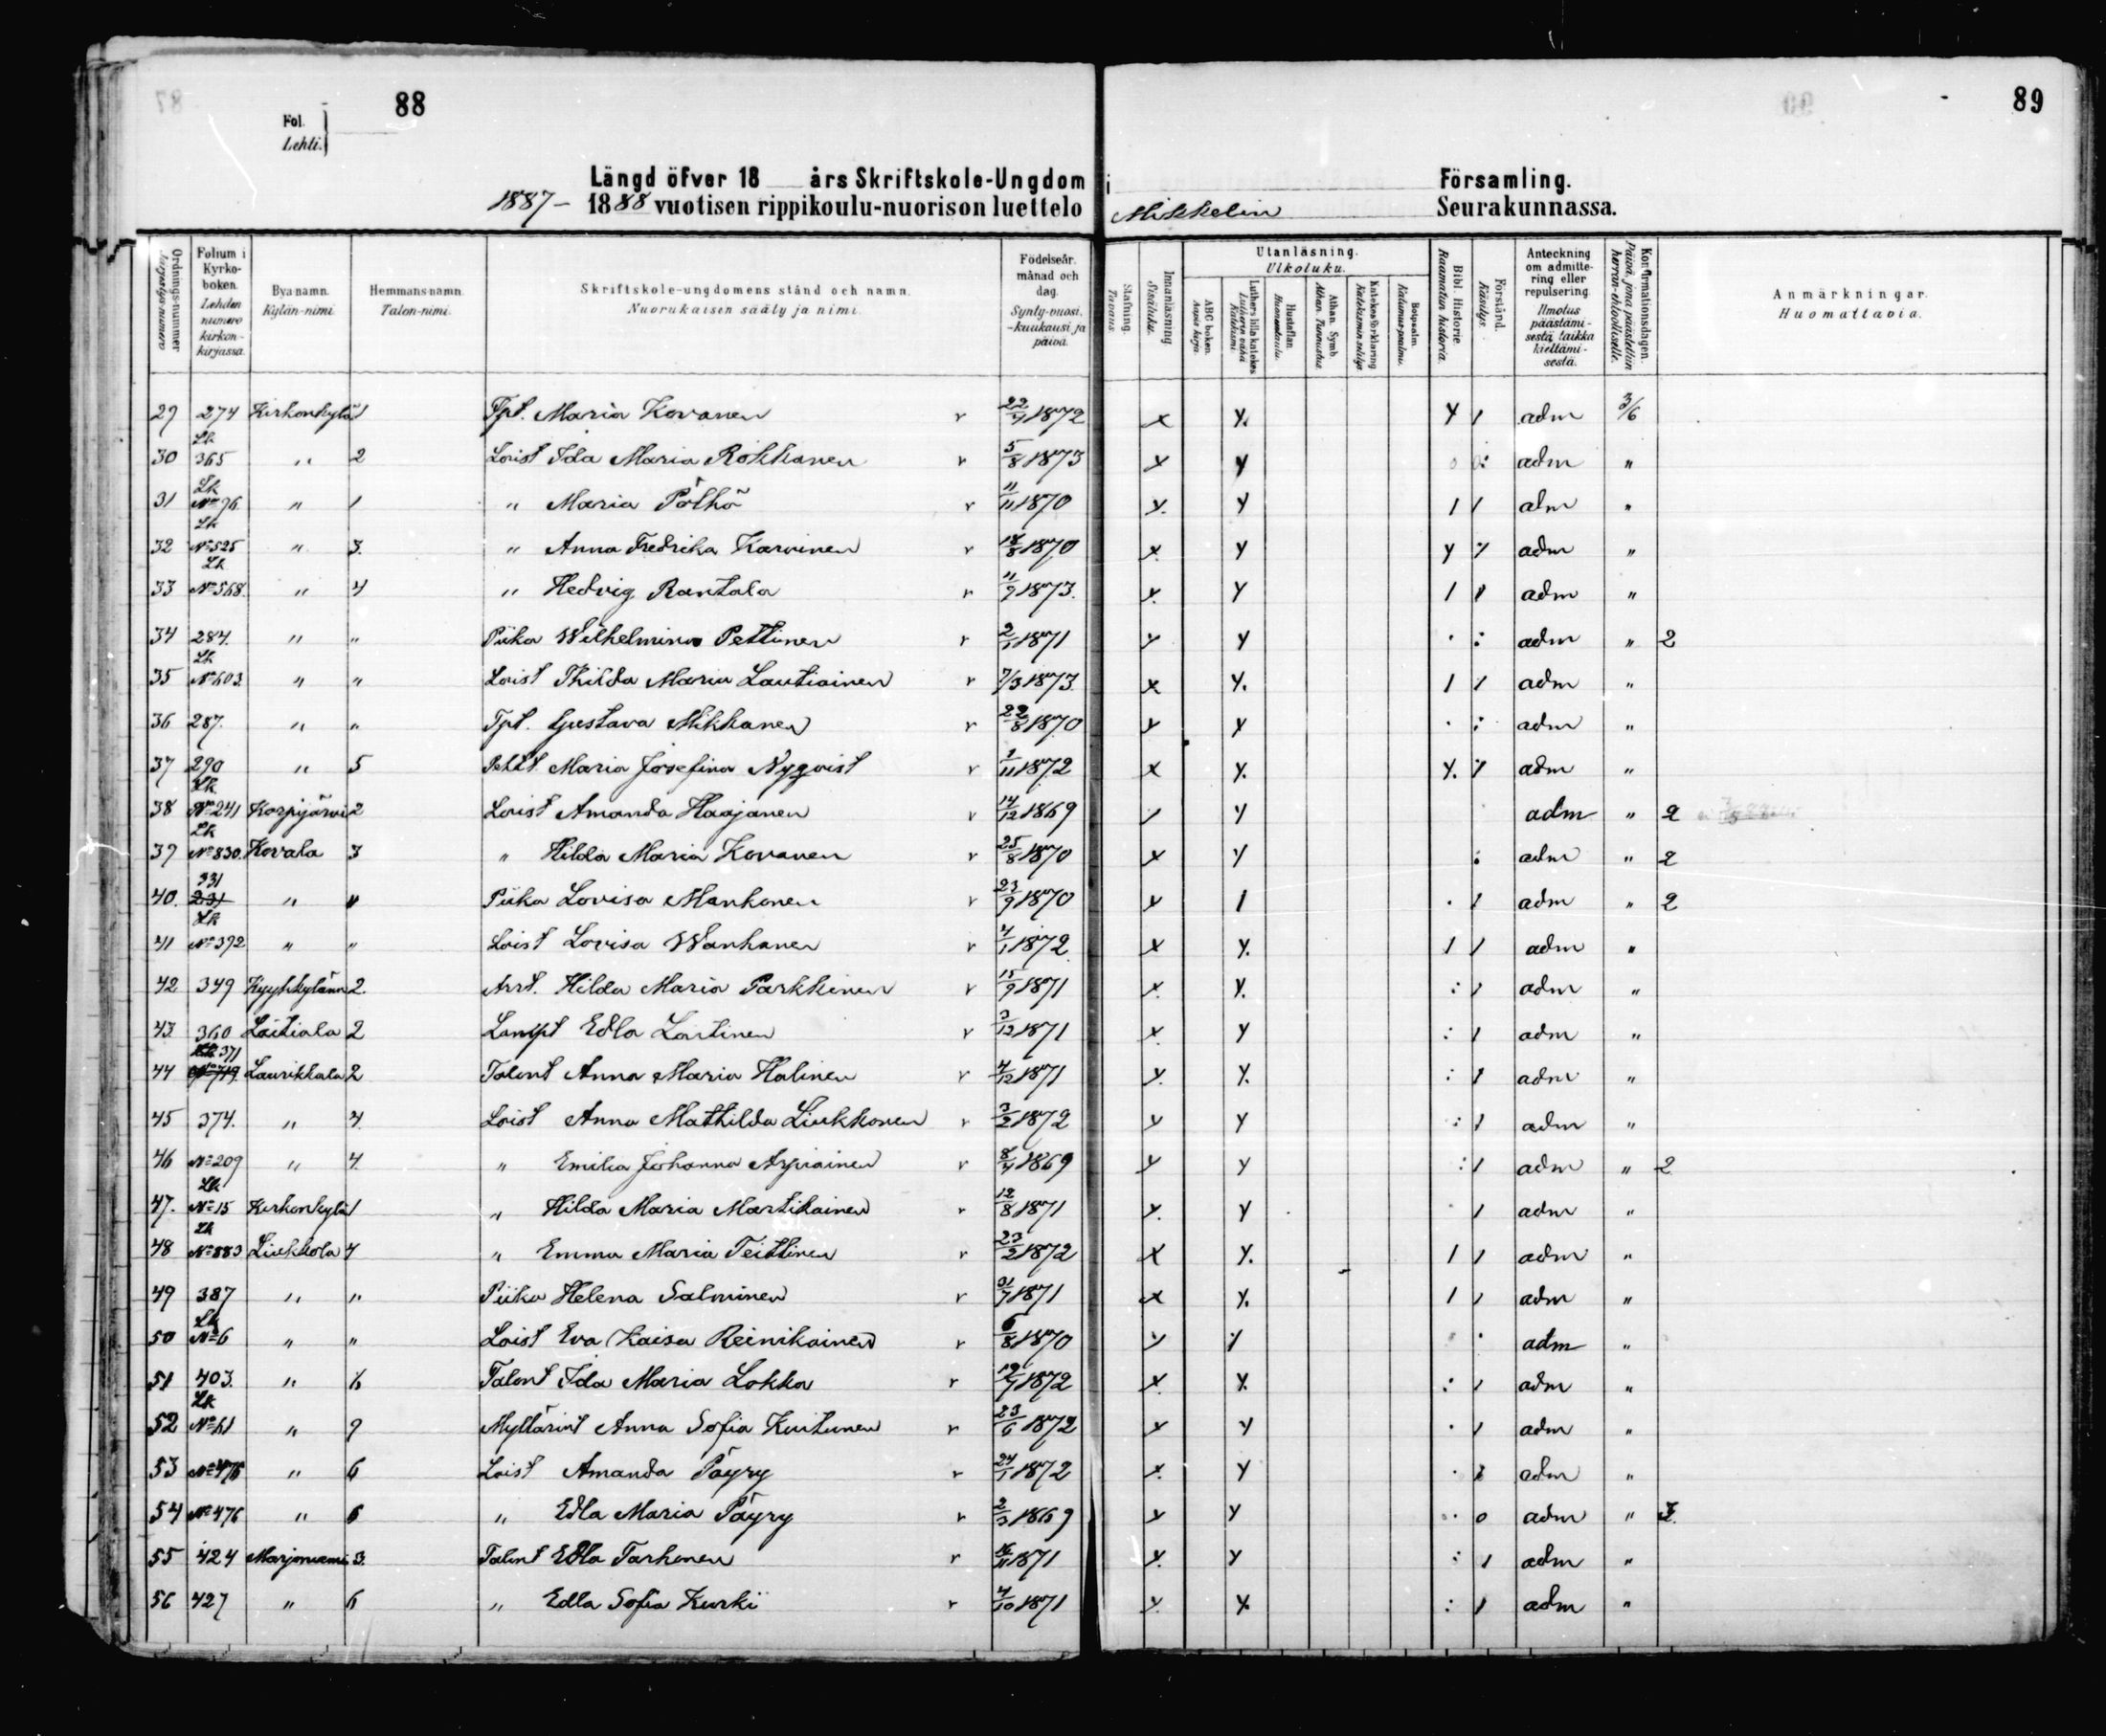 88
89
Fol.
Lehti.
Längd öfver 18 års Skriftskole-Ungdom i Församling.
1887- 1888 vuotisen rippikoulu-nuorison luettelo Mikkelin Seurakunnassa.
Ordnings-nummer Folium i Kyrko-boken. Lehden numero kirkon-kirjassa. Bya namn. Kylän-nimi. Hemmans-namn. Talon-nimi. Skriftskole-ungdomens stånd och namn. Nuorukaisen sääty ja nimi. Födelseår. månad och dag. Synty-vuosi. -kuukausi ja päivä. Stafning. Tavaus. Innanläsning Sisäluku. Utanläsning. Ulkoluku. ABC boken. Aapis kirja. Luthers lilla katekes Lutherin vähä Katekismi. Hustaflan Huoneentaulu. Athan. Symb. Athan. Tunnustus. Katekesförklaring Katekismin selitys Botpsalm. Katumus-psalmi. Bibl. Historie Raamatun historia. Förstånd. Käsitys. Anteckning om admitte-ring eller repulsering. Ilmotus päästämi-sestä taikka kieltämi-sestä. Konfirmationsdagen. Päivä, jona päästettiin herran-ehtoolliselle. Anmärkningar. Huomattavia.
29 274 Kirkonkylä 1 Tpt. Maria Kovanen r 22/4 1872 x y. y 1 adm 3/6
30 Lk 365 " 2 Loist Ida Maria Rökkänen r 5/8 1873 x y adm "
31 Lk №96 " 1 " Maria Pöllö r 11/11 1870 y. y 1 1 adm "
32 Lk №525 " 3. " Anna Fredrika Karvinen r 18/8 1870 x y y adm "
33 Lk №568. " 4 " Hedvig Rantala r 11/9 1873. x. y 1 1 adm "
34 284. " " Piika Wilhelmina Pettinen r 2/1 1871 y y . : adm " 2
35 Lk №603 " " Loist Thilda Maria Lautiainen r 7/3 1873. x y. 1 1 adm "
36 287. " " Tpt. Gustava Mikkanen r 22/8 1870 y y . : adm "
37 290 " 5 Maria Josefina Nyqvist r 1/11 1872 x y. y. adm "
38 Lk №241 Korpijärvi 2 Loist Amanda Haajanen r 14/12 1869 y adm " 2
39 Lk №830. Kovala 3 " Hilda Maria Kovanen r 25/8 1870 x y : adm " 2
40. 331 " " Piika Lovisa Mankonen r 23/9 1870 x 1 . 1 adm " 2
41 Lk №392 " " Loist Lovisa Wanhanen r 4/1 1872 x y. 1 1 adm "
42 349 Kyyhkylänn. 2. Hilda Maria Parkkinen r 15/9 1871 x. y. : 1 adm "
43. 360 Laitiala 2 Lampt Edla Laitinen r 3/12 1871 x. y : 1 adm "
44 371 Laurikkala 2 Talont Anna Maria Halinen r 4/12 1871 y. y. : 1 adm "
45 374. " 4 Loist Anna Mathilda Liukkonen r 3/2 1872 y y : 1 adm "
46 №209 " 4 " Emilia Johanna Arpiainen r 8/4 1869 y y : 1 adm " 2
47. Lk №15 Kirkonkylä 1 " Hilda Maria Martikainen r 12/8 1871 y. y 1 adm "
48 Lk №883 Liukkola 4 " Emma Maria Teittinen r 23/2 1872 x y. 1 1 adm "
49 387 " " Piika Helena Salminen r 31/7 1871 x y. 1 1 adm "
50 Lk №6 " " Loist Eva Kaisa Reinikainen r 6/8 1870 y adm "
51 403. " Talont Ida Maria Lokka r 1872 x. y. : 1 adm "
52 Lk №61 " 9 Myllärint Anna Sofia Kuitunen r 23/6 1872 x y . 1 adm "
53 №476 " 6 Loist Amanda Päyry r 24/1 1872 x. y . adm "
54 №476 " 6 " Edla Maria Päyry r 2/3 1869 x y o adm "
55 424 Marjoniemi 3. Talont Edla Tarhonen r 16/11 1871 y. y : 1 adm "
56 427 " 6 " Edla Sofia Kurki r 4/10 1871 y. y. : 1 adm "